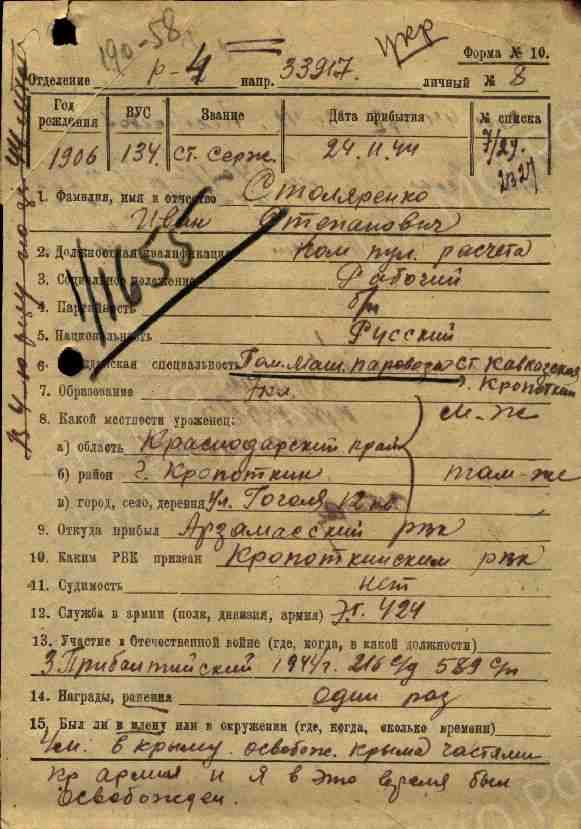 190-58
укр
Форма № 10.
Отделение р-4 напр. 33917. личный № 8
Год рождения ВУС Звание Дата прибытия № списка
1906 134 ст. серж. 24.11.44 7/29.
2327
1. Фамилия, имя и отчество Столяренко
Иван Степанович
2. Должностная квалификация Ком. пул. расчета
3. Социальное положение Рабочий
4. Партийность б/п
5. Национальность Русский
6. специальность Пом. маш. паровоза ст. Кавказская
г. Кропоткин
7. Образование 7 кл
8. Какой местности уроженец: м-ж
а) область Краснодарский край
б) район г. Кропоткин там-же
в) город, село, деревня ул. Гоголя
9. Откуда прибыл Арзамасский рвк
10. Каким РВК призван Кропоткинским рвк
11. Судимость нет
12. Служба в армии (полк, дивизия, армия) 424
13. Участие в Отечественной войне (где, когда, в какой должности)
3 Прибалтийский 1944г. 216 с/д 589 с/п
14. Награды, ранения один раз
15. Был ли в плену или в окружении (где, когда, сколько времени)
в крыму. освобож. Крыма частями
кр армия и я в это время был
освобожден.
1/1655